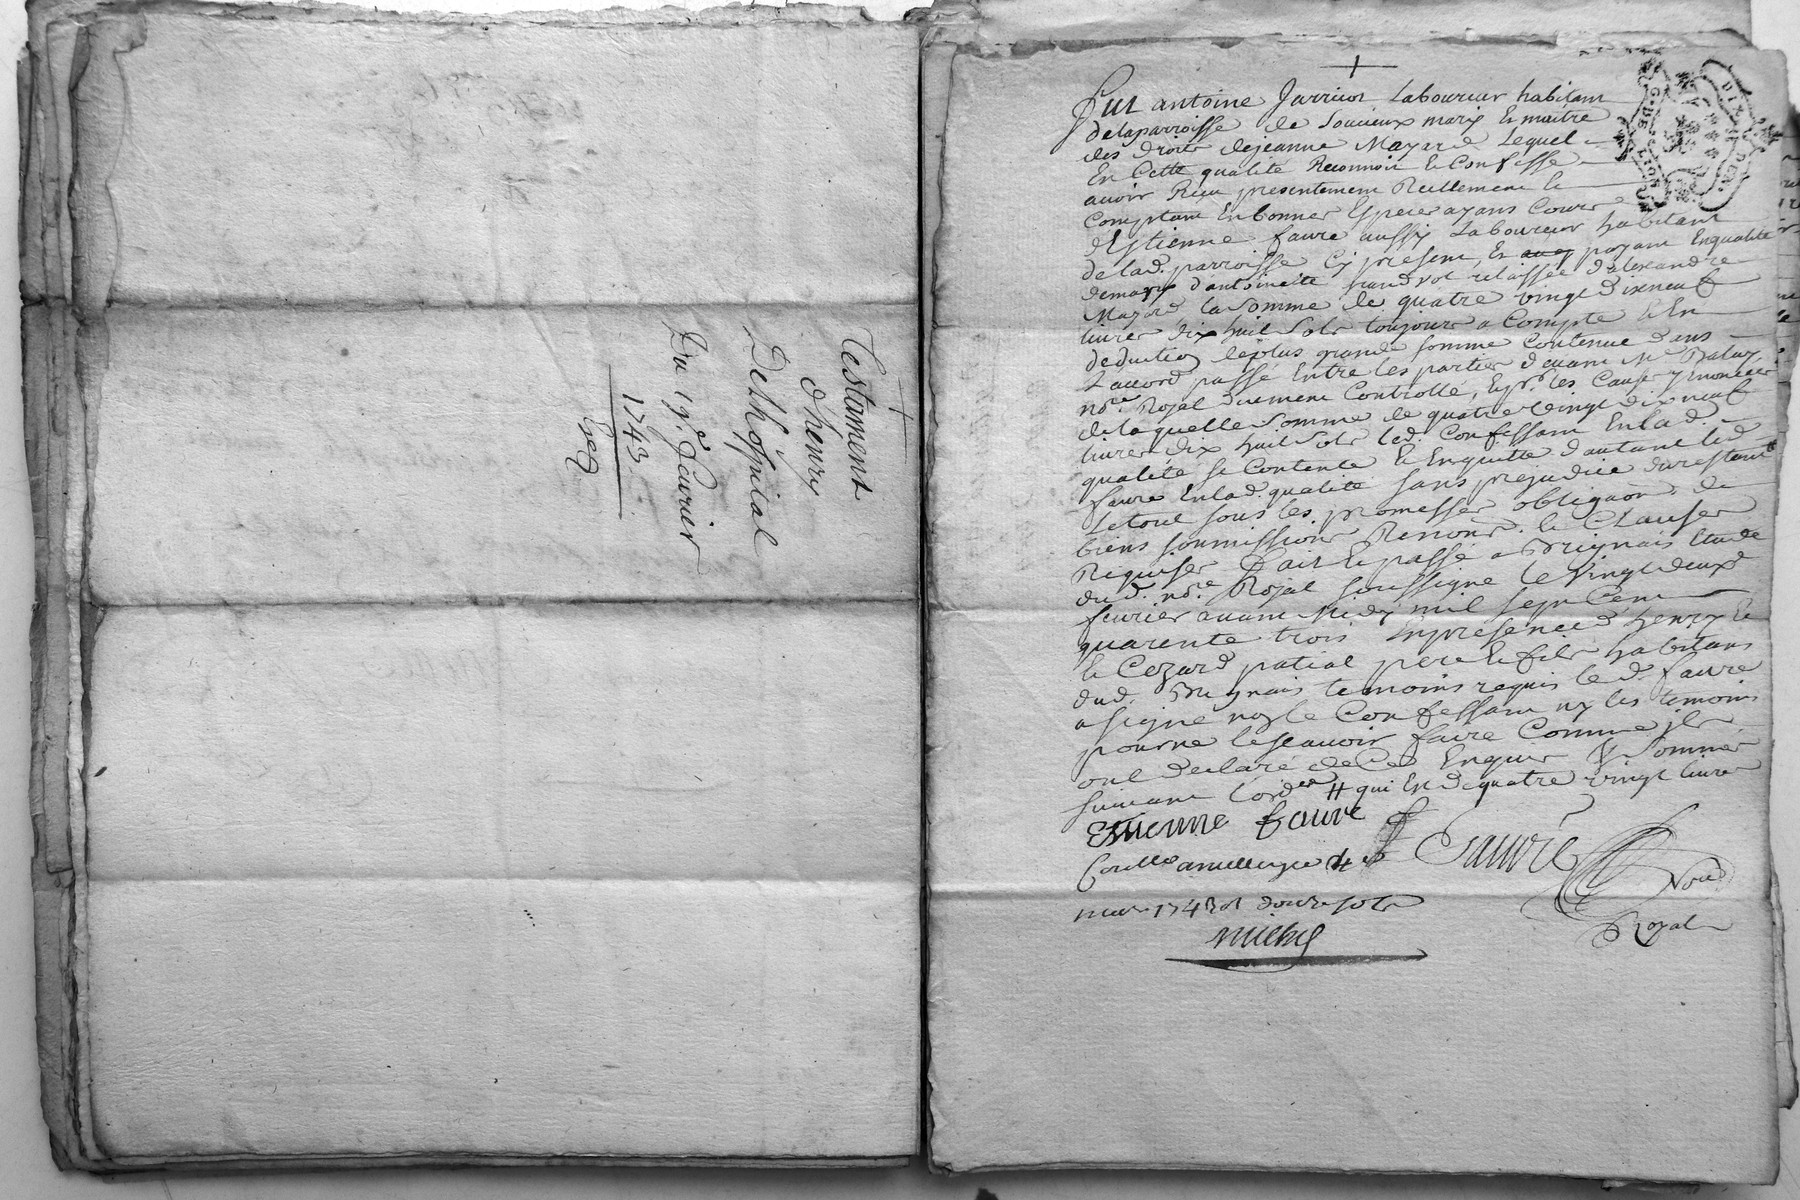 Testament
d'henry
Delhospital
Du 19e. fevrier
1743
Exed
Fut antoine Jarricot Laboureur habitant
de la parroisse de Soucieux mary et maitre
des droits de jeanne Mazard Lequel
En Cette qualité Reconnoit et Confesse
avoir Recu presentement Reellement et
Comptant En bonnes Especes ayans Cours
d'Estienne favre aussy Laboureur habitant
de lad. parroisse Cy present, Et payant En qualité
de mary d'antoinette relaissée d'alexandre
Mazard la Somme de quatre vingt dixneuf
livres dix huit Sols toujours a Compte et En
deduction de plus grande Somme Contenue dans
L'accord passé Entre les parties devant Me
nore. Royal duement Controllé, Et pr. les Causes y
de laquelle Somme de quatre vingt dix neuf
livres dix huit Sols led. Confessant En lad.
qualité se Contente et En quitte d'autant led.
favre En lad. qualité sans prejudice du restant
Le tout sous les promesses obligaõns de
biens soumissions Renonõns. et Clauses
Requises fait et passé a Brignais Etude
dud. nore. Royal soussigné le vingt deux
fevrier avant Midy mil sept Cent
quarente trois En presence d'henry et
et Cezard patial pere et fils habitans
dud. Brignais temoins requis led. favre
a signé non le Confessant ny les temoins
pour ne le scavoir faire Comme ils
ont declaré de Ce Enquis & Sommés
suivant L'ordce # qui Est de quatre vingt livres
Estienne favre
Favre
Conllé a
Nore
mars 1743 Rt douze sols
Royal
michel
G. DE LYON
DIX DEN.